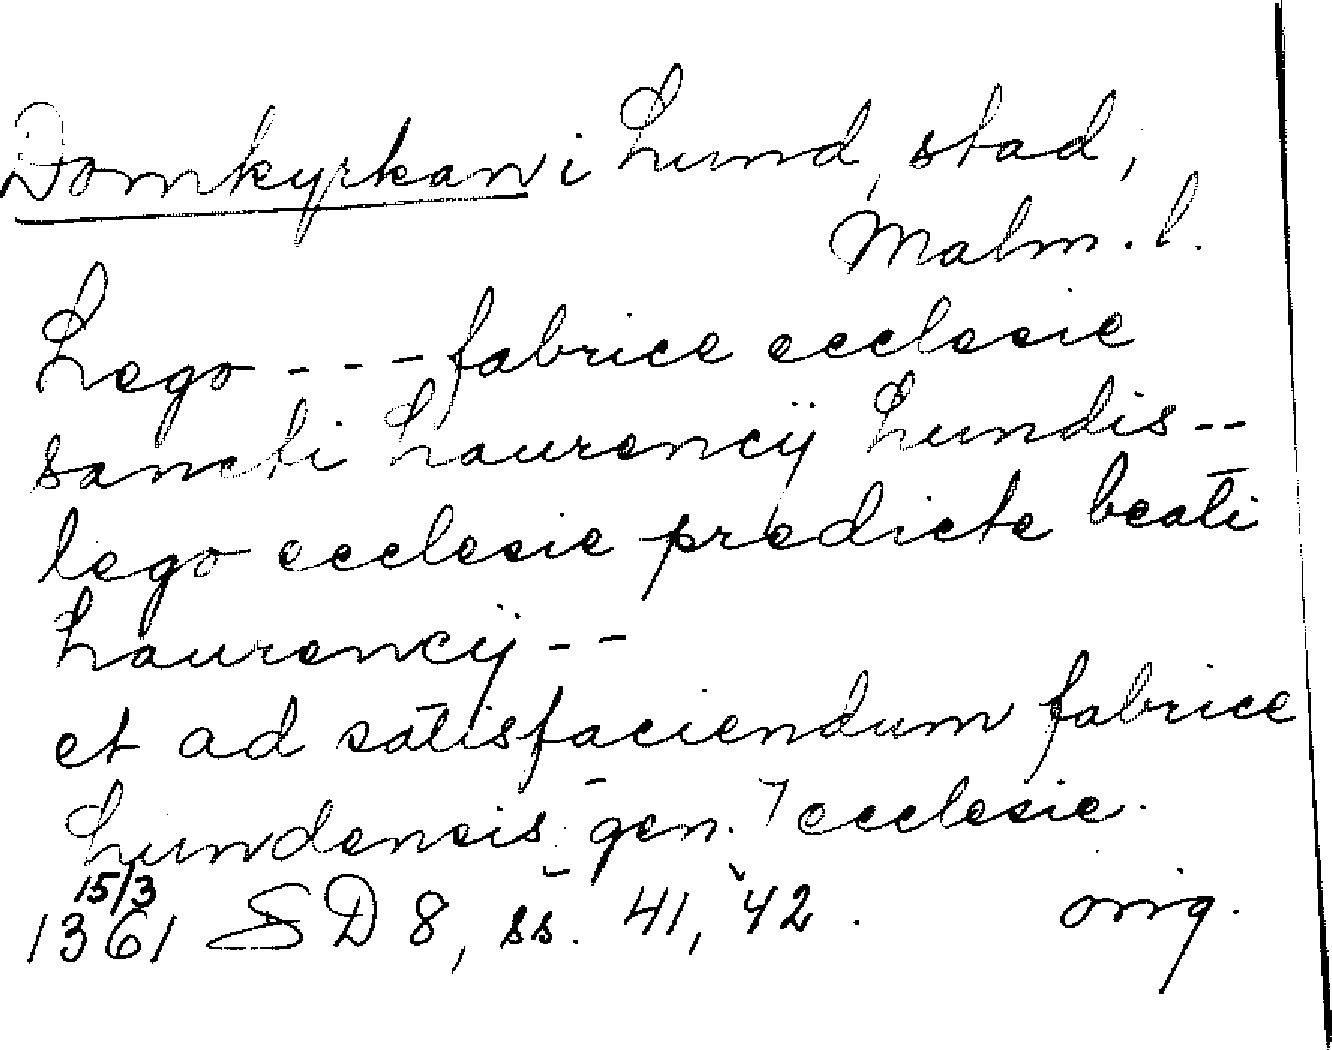 Domkyrkan i Lund, stad,
Malm. l.
Lego --- fabrice ecclesie
sancti Laurencij Lundis --
lego ecclesie predicte beati
Laurencij --
et ad satisfaciendum fabrice
Lundensis gen. ecclesie.
15/3
1361 SD 8, ss. 41, 42. orig.